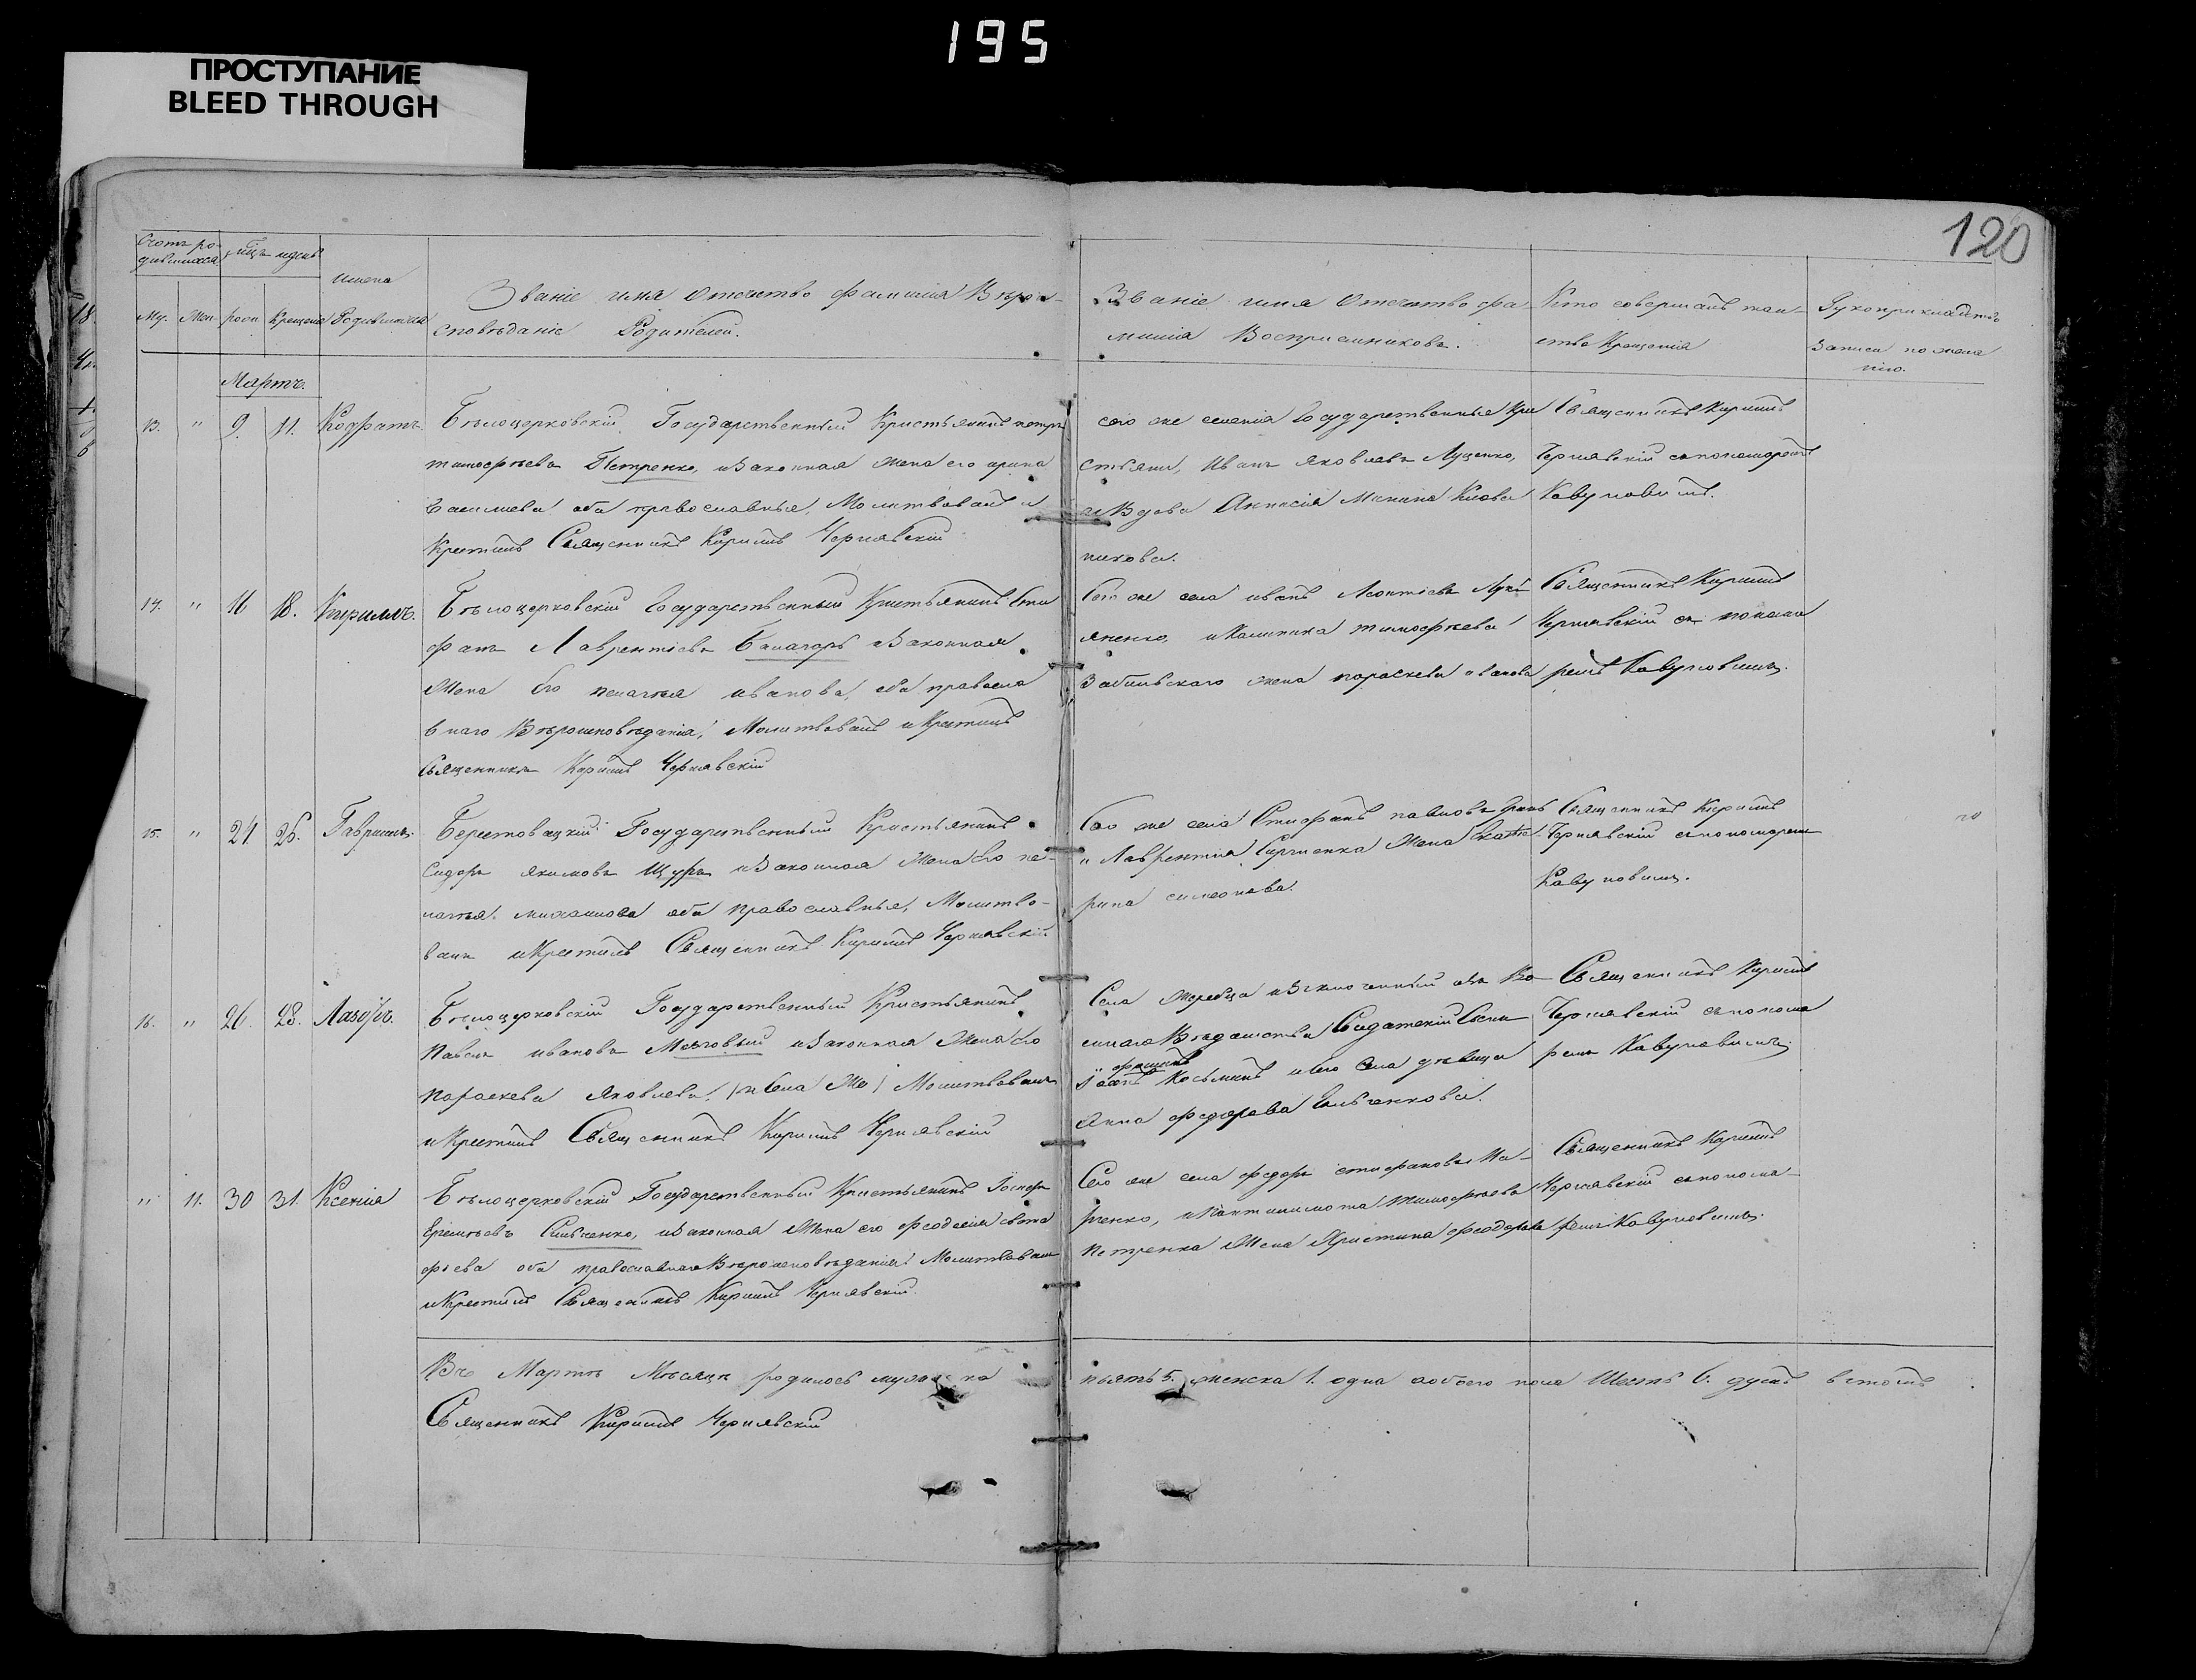 195
ПРОСТУПАНИЕ
BLEED THROUGH
120
Счотъ родившихся
мѣцъ и день
имена
Му.
Жен.
рожд.
Крещенія
Родившихся
Званіе имя Отечество фамилія Вѣрои-
сповѣданіе Родителей.
Званіе имя Отечество фа-
милія Воспріемниковъ.
Кто совершалъ таин-
ство Крещенія
Рукоприкладство
Записи по жела
нію.
Мартъ.
13. " 9. 11. Кодратъ.
Бѣлоцерковскій Государственный Крестьянинъ петръ
тимофѣевъ Петренко, и Законная жена его ирина
Василиева оба православныя, Молитвовалъ и
Крестилъ Священникъ Кирилъ Чернявскій
сего же селенія Государственныя Кре
стьяни, Иванъ Яковлевъ Луценко,
и Вдова Анисія Минина
никова.
Священникъ Кирилъ
Чернявскій съ пономаремъ
Кавуновимъ.
14. " 16 18. Кирилъ.
Бѣлоцерковскій Государственный Крестьянинъ Сти
фанъ Лаврентіевъ Балагоръ и Законная
Жена Его пелагія иванова, оба правосла
внаго Вѣроисповѣданія, Молитвовалъ и Крестилъ
Священникъ Кирилъ Чернявскій
Сего же села иванъ Леонтіевъ Лукі
яненко, и Калиника тимофѣева
Забильскаго жена параскева иванова
Священникъ Кирилъ
Чернявскій съ понома
ремъ Кавуновимъ.
15. " 24 26. Гавриилъ.
Берестовацкій Государственный Крестьянинъ
Сидоръ якимовъ Щуръ и Законная Жена Его пе-
лагія михаилова оба православныя, Молитво-
валъ и Крестилъ Священникъ Кирилъ Чернявскій
Сего же села Стифанъ павловъ
и Лаврентія Сергіенка Жена Екате-
рина симеонова.
Священникъ Кирилъ
Чернявскій съ пономаремъ
Кавуновимъ.
16. " 26. 28. Лазарь.
Бѣлоцерковскій Государственный Крестьянинъ
Павелъ ивановъ и Законная Жена Его
параскева Яковлева, Молитвовалъ
и Крестилъ Священникъ Кирилъ Чернявскій
Села Жеребца изключенный изъ Во-
еннаго Вѣдомства Салдатскій Сынъ
Косьминъ и сего Села дѣвица
Анна федорова Сильченкова.
Священникъ Кирилъ
Чернявскій съ понома
ремъ Кавуновимъ.
" 11. 30 31. Ксенія
Бѣлоцерковскій Государственный Крестьянинъ
Еремѣевъ Сильченко, и Законная Жена его феодосія
фіева оба православнаго Вѣроисповѣданія Молитвовалъ
и Крестилъ Священникъ Кирилъ Чернявскій.
Сего же села федоръ стифановъ Ма-
рченко, и тимофѣева
Петренка Жена Христина феодорова
Священникъ Кирилъ
Чернявскій съ понома-
ремъ Кавуновимъ.
Въ Мартѣ Мѣсяцѣ родилось мужеска пьять 5. женска 1. одна а обоего пола Шесть 6. душъ
Священникъ Кирилъ Чернявскій